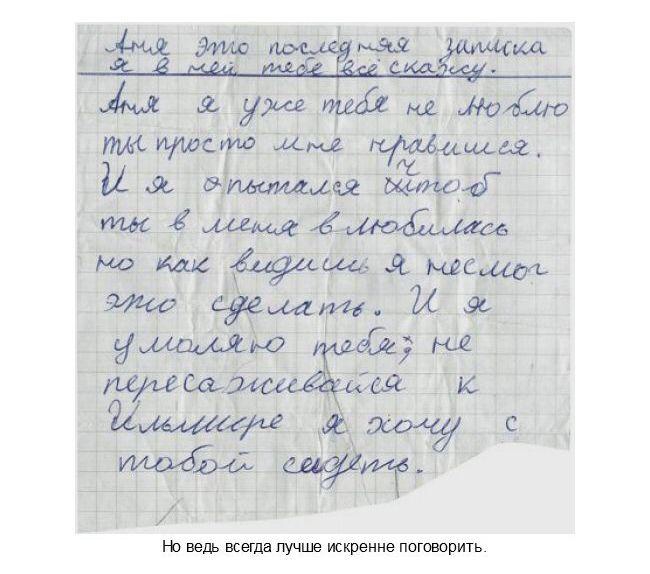 Аня это последняя записка
я в ней тебе всё скажу.
Аня я уже тебя не люблю
ты просто мне нравишся.
И я опытался чтоб
ты в меня влюбилась
но как видишь я несмог
это сделать. И я
умоляю тебя, не
пересаживайся к
Ильмире я хочу с
тобой сидеть.
Но ведь всегда лучше искренне поговорить.